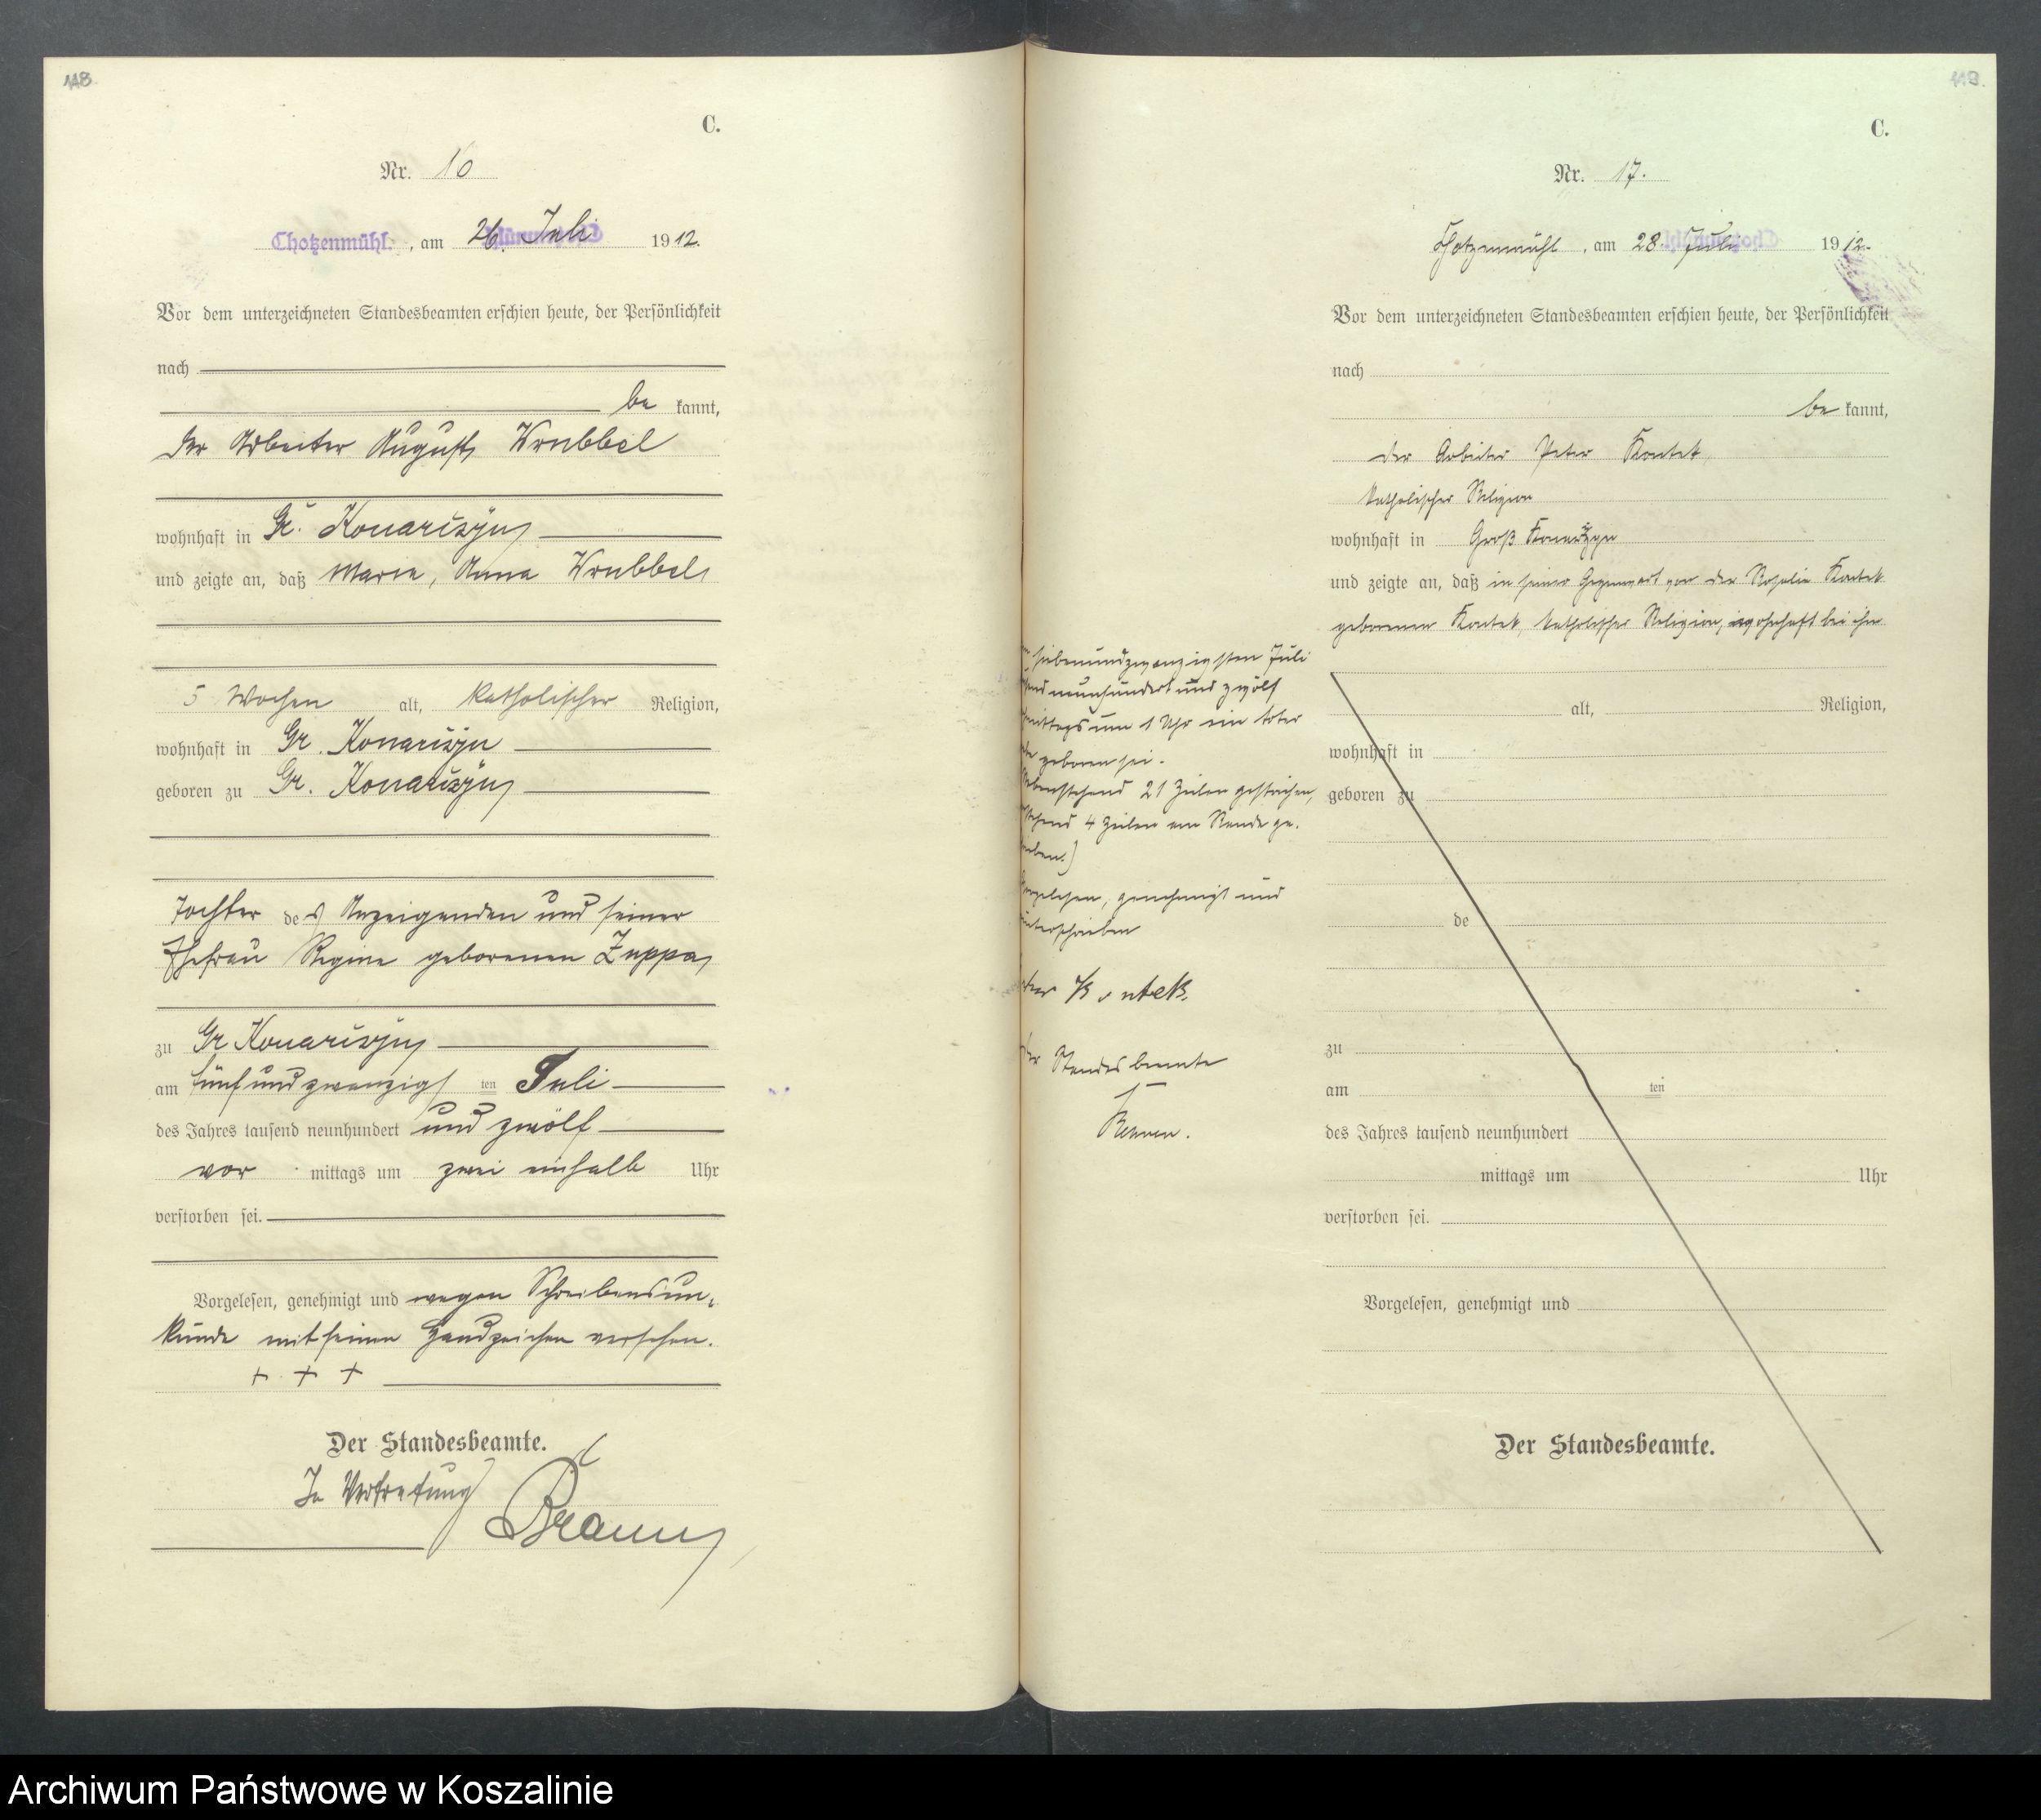 118.
C.
Nr. 16
Chotzenmühl. , am 26. Juli 1912.
Vor dem unterzeichneten Standesbeamten erschien heute, der Persönlichkeit
nach
be kannt,
der Arbeiter August Wrubbel
wohnhaft in Gr. Konarczyn
und zeigte an, daß Maria, Anna Wrubbel
5 Wochen alt, katholischer Religion,
wohnhaft in Gr. Konarczyn
geboren zu Gr. Konarczyn
Tochter des Anzeigenden und seiner
Ehefrau Regine geborenen Zuppa
zu Gr Konarczyn
am fünfundzwanzigsten Juli
des Jahres tausend neunhundert und zwölf
vor mittags um zwei einhalb Uhr
verstorben sei.
Vorgelesen, genehmigt und wegen Schreibensun-
kunde mit seinen Handzeichen versehen.
+ + +
Der Standesbeamte.
In Vertretung
119.
C.
Nr. 17.
Chotzenmühl , am 28. Juli 1912.
Vor dem unterzeichneten Standesbeamten erschien heute, der Persönlichkeit
nach
be kannt,
der Arbeiter Peter Kontek,
katholischer Religion
wohnhaft in Groß Konarczyn
und zeigte an, daß in seiner Gegenwart von der Rosalie Kontek
geborenen Kontek, katholischer Religion, wohnhaft bei ihm
alt, Religion,
wohnhaft in
geboren zu
de
zu
am ten
des Jahres tausend neunhundert
mittags um Uhr
verstorben sei.
Vorgelesen, genehmigt und
Der Standesbeamte.
siebenundzwanzigsten Juli
neunhundert und zwölf
mittags um 1 Uhr ein toter
geboren sei.
21 Zeilen gestrichen,
4 Zeilen am Rande ge-
genehmigt und
unterschrieben
Kontek.
Standesbeamte
Archiwum Państwowe w Koszalinie